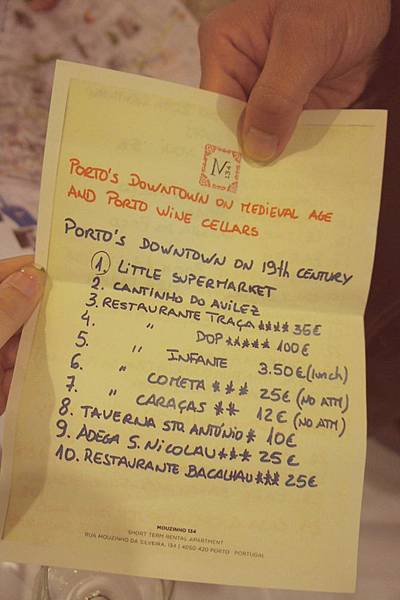 M
134
PORTO'S DOWNTOWN ON MEDIEVAL AGE
AND PORTO WINE CELLARS
PORTO'S DOWNTOWN ON 19th CENTURY
1. LITTLE SUPERMARKET
2. CANTINHO DO AVILEZ
3. RESTAURANTE TRAÇA **** 35€
4. " DOP ***** 100€
5. " INFANTE 3.50€ (lunch)
6. " COMETA *** 25€ (NO ATM)
7. " CARAÇAS ** 12€ (NO ATM)
8. TAVERNA STO ANTÓNIO * 10€
9. ADEGA S. NICOLAU *** 25€
10. RESTAURANTE BACALHAU *** 25€
MOUZINHO 134
SHORT TERM RENTAL APARTMENT
RUA MOUZINHO DA SILVEIRA, 134 | 4050-420 PORTO · PORTUGAL